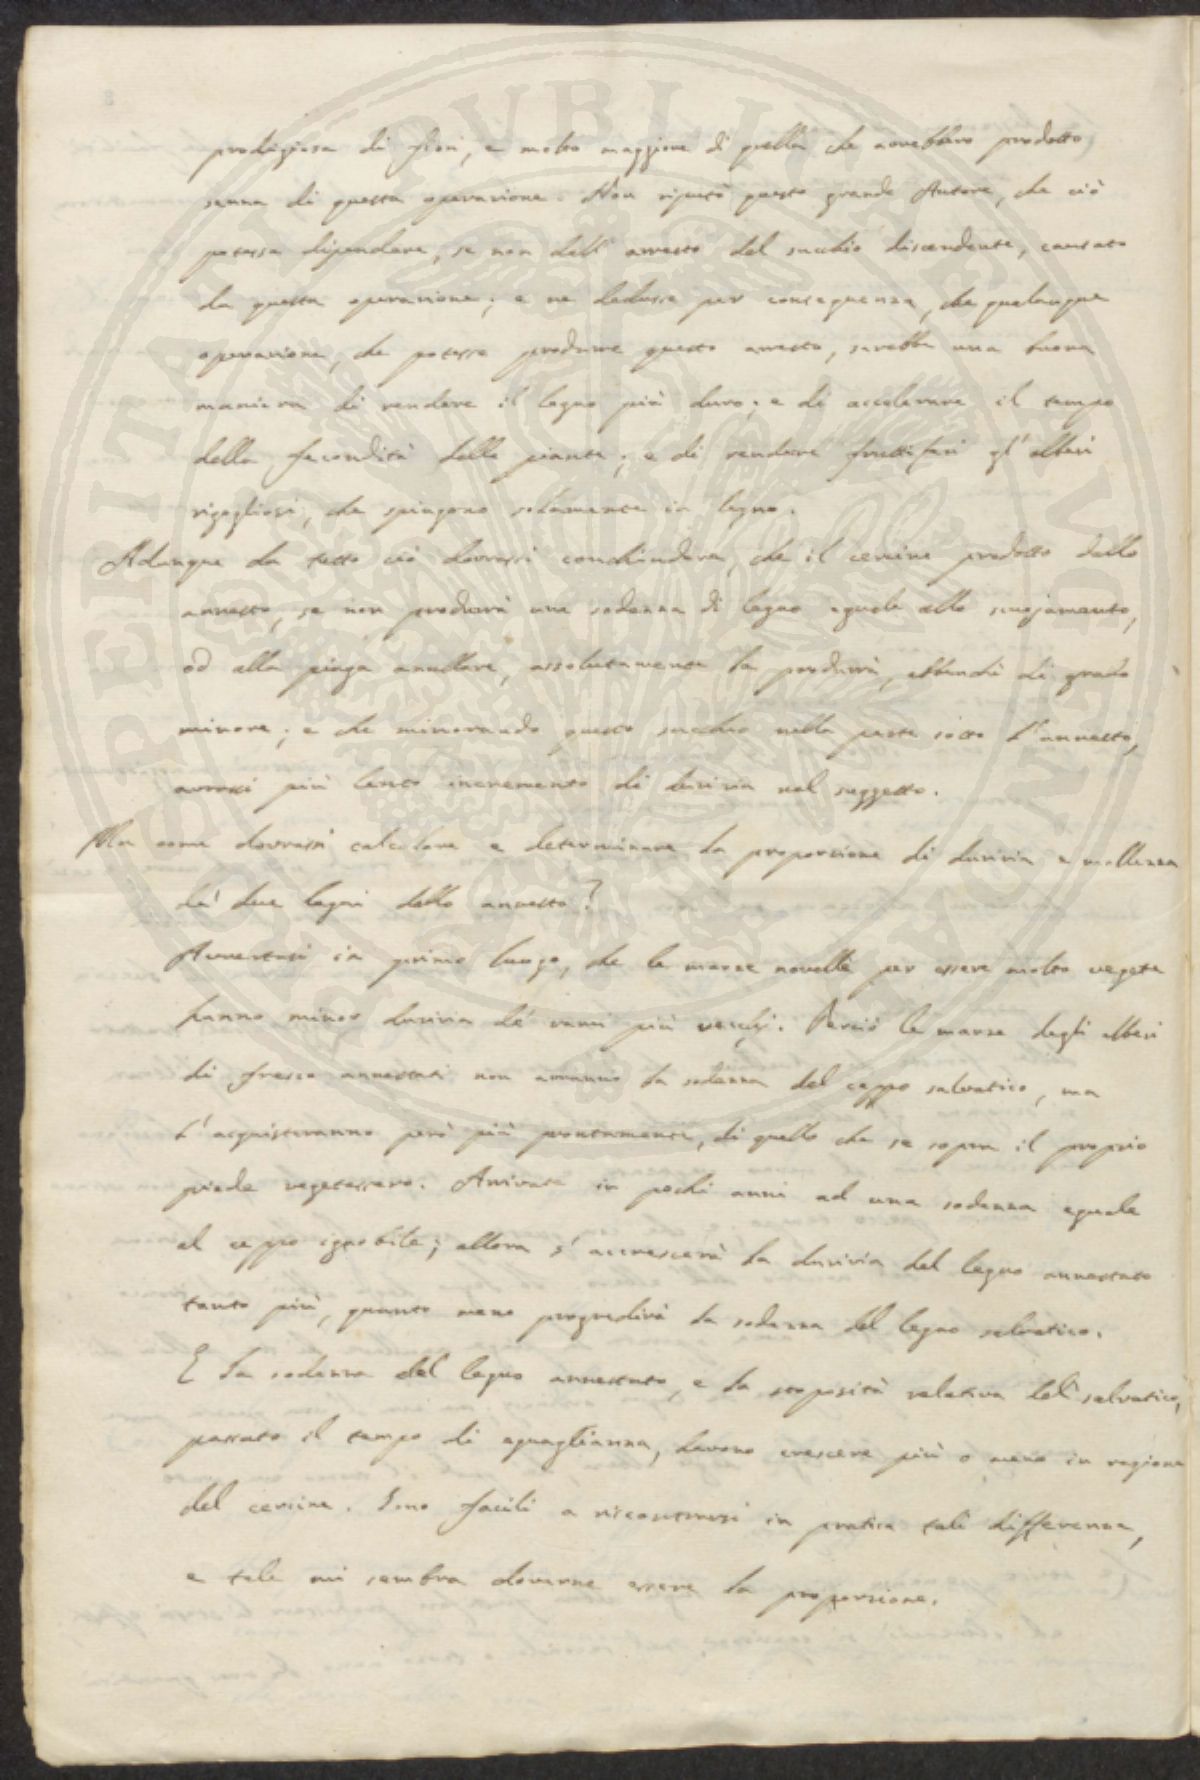 prodigiosa di fiori, e molto maggiore di quella che avrebbero prodotto
senza di questa operazione. Non riputò questo grande Autore, che ciò
potesse dipendere, se non dall' arresto del succhio discendente, causato
da questa operazione; e ne dedusse per conseguenza, che qualunque
operazione, che potesse produrre questo arresto, sarebbe una buona
maniera di rendere il legno più duro; e di accelerare il tempo
della fecondità delle piante; e di rendere fruttiferi gl' alberi
rigogliosi, che spingono solamente in legno.
Adunque da tutto ciò dovrassi conchiudere, che il cercine prodotto dallo
annesto, se non produrrà una sodezza di legno eguale allo scuojamento,
od alla piaga anullare, assolutamente la produrrà, abbenchè di grado
minore; e che minorando questo succhio nella parte sotto l' annesto,
avrassi più lento incremento di durizia nel suggetto.
Ma come dovrassi calcolare e determinare la proporzione di durizia e mollezza
de' due legni dello annesto?
Avvertasi in primo luogo, che le marze novelle per essere molto vegete
hanno minor durizia de' rami più vecchj. Perciò le marze degli alberi
di fresco annestati non avranno la sodezza del ceppo salvatico, ma
l' acquisteranno però più prontamente, di quello che se sopra il proprio
piede vegetassero. Arrivate in pochi anni ad una sodezza eguale
al ceppo ignobile; allora s' accrescerà la durizia del legno annestato
tanto più, quanto meno progredirà la sodezza del legno salvatico.
E la sodezza del legno annestato, e la stoposità relativa del salvatico,
passato il tempo di aguaglianza, devono crescere più o meno in ragione
del cercine. Sono facili a riscontrarsi in pratica tali differenze,
e tale mi sembra doverne essere la proporzione.
PROSPERITATI PUBLICAE AUGENDAE